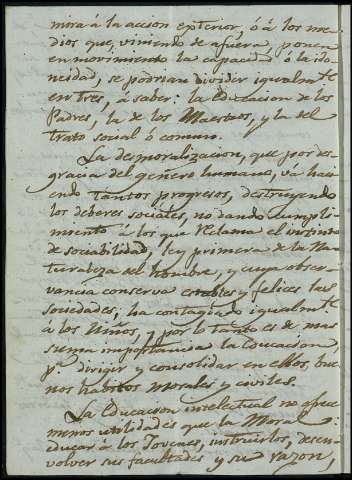 mira á la accion exterior, ó á los me=
dios que, viniendo de afuera, ponen
en movimiento la capacid.^d ó la ido=
neidad, se podrian dividir igualm.^te
en tres, á saber: la Educacion de los
Padres, la de los Maestros, y la del
trato social ó comun.
La desmoralizacion, que por des=
gracia del genero humano, va haci=
endo tantos progresos, destruyendo
los deberes sociales, no dando cumpli=
miento á los que reclama el instinto
de sociabilidad, ley primera de la Na=
turaleza del hombre, y cuya obser=
vancia conserva estables y felices las
sociedades, ha contagiado igualm.^te
á los Niños, y por lo tanto es de mu=
suma importancia la Educacion
p.^a dirigir y consolidar en ellos, bue=
nos habitos morales y civiles.
La Educacion intelectual no ofrece
menos utilidades que la Moral:
educar á los Jovenes, instruirlos, desen=
volver sus facultades y su razon,